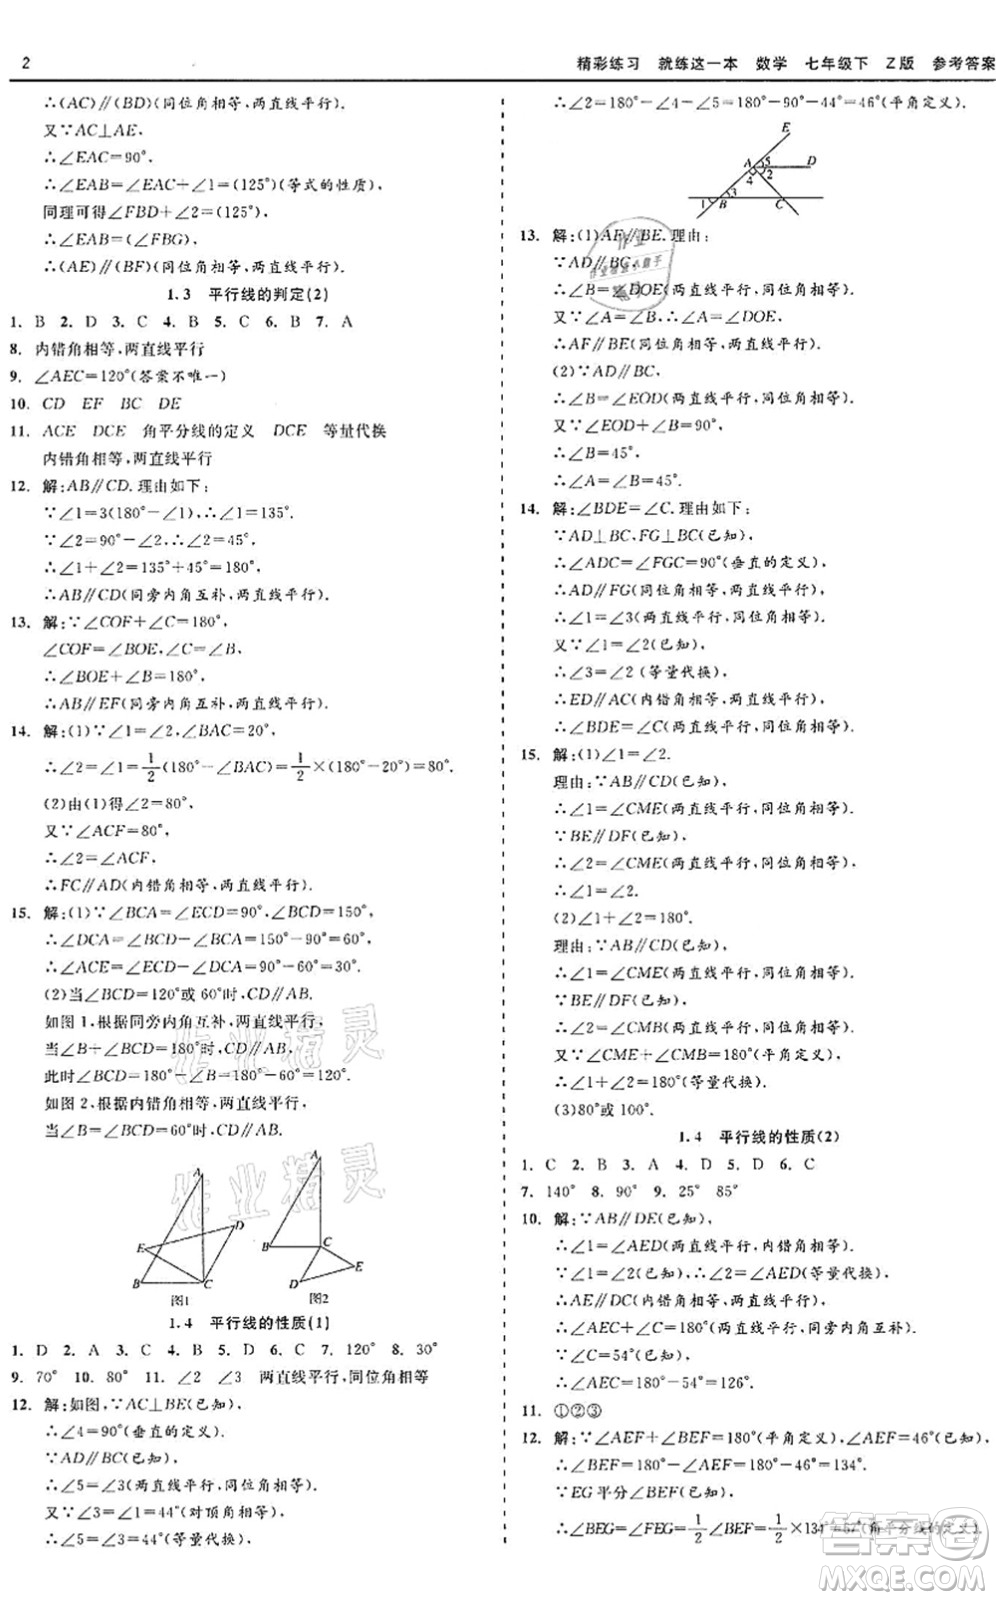 2
精彩练习 就练这一本 数学 七年级下 Z版 参考答案
∴(AC)∥(BD)(同位角相等,两直线平行).
又∵AC⊥AE,
∴∠EAC=90°,
∴∠EAB=∠EAC+∠1=(125°)(等式的性质),
同理可得∠FBD+∠2=(125°),
∴∠EAB=(∠FBG),
∴(AE)∥(BF)(同位角相等,两直线平行).
1.3 平行线的判定(2)
1. B 2. D 3. C 4. B 5. C 6. B 7. A
8. 内错角相等,两直线平行
9. ∠AEC=120°(答案不唯一)
10. CD EF BC DE
11. ACE DCE 角平分线的定义 DCE 等量代换
内错角相等,两直线平行
12. 解:AB∥CD.理由如下:
∵∠1=3(180°-∠1),∴∠1=135°.
∵∠2=90°-∠2,∴∠2=45°,
∴∠1+∠2=135°+45°=180°,
∴AB∥CD(同旁内角互补,两直线平行).
13. 解:∵∠COF+∠C=180°,
∠COF=∠BOE,∠C=∠B,
∴∠BOE+∠B=180°,
∴AB∥EF(同旁内角互补,两直线平行).
14. 解:(1)∵∠1=∠2,∠BAC=20°,
∴∠2=∠1=1/2(180°-∠BAC)=1/2×(180°-20°)=80°.
(2)由(1)得∠2=80°,
又∵∠ACF=80°,
∴∠2=∠ACF,
∴FC∥AD(内错角相等,两直线平行).
15. 解:(1)∵∠BCA=∠ECD=90°,∠BCD=150°,
∴∠DCA=∠BCD-∠BCA=150°-90°=60°,
∴∠ACE=∠ECD-∠DCA=90°-60°=30°.
(2)当∠BCD=120°或60°时,CD∥AB.
如图1,根据同旁内角互补,两直线平行,
当∠B+∠BCD=180°时,CD∥AB,
此时∠BCD=180°-∠B=180°-60°=120°;
如图2,根据内错角相等,两直线平行,
当∠B=∠BCD=60°时,CD∥AB.
A
D
E
B
C
图1
A
B
C
E
D
图2
1.4 平行线的性质(1)
1. D 2. A 3. C 4. D 5. C 6. C 7. 120° 8. 30°
9. 70° 10. 80° 11. ∠2 ∠3 两直线平行,同位角相等
12. 解:如图,∵AC⊥BE(已知),
∴∠4=90°(垂直的定义).
∵AD∥BC(已知),
∴∠5=∠3(两直线平行,同位角相等).
又∵∠3=∠1=44°(对顶角相等),
∴∠5=44°(等量代换),
∴∠2=180°-∠4-∠5=180°-90°-44°=46°(平角定义).
E
A
5
D
4
2
1
B
3
C
13. 解:(1)AF∥BE.理由:
∵AD∥BC,
∴∠B=∠DOE(两直线平行,同位角相等).
又∵∠A=∠B,∴∠A=∠DOE,
∴AF∥BE(同位角相等,两直线平行).
(2)∵AD∥BC,
∴∠B=∠EOD(两直线平行,同位角相等).
又∵∠EOD+∠B=90°,
∴∠B=45°,
∴∠A=∠B=45°.
14. 解:∠BDE=∠C.理由如下:
∵AD⊥BC,FG⊥BC(已知),
∴∠ADC=∠FGC=90°(垂直的定义),
∴AD∥FG(同位角相等,两直线平行),
∴∠1=∠3(两直线平行,同位角相等).
又∵∠1=∠2(已知),
∴∠3=∠2(等量代换),
∴ED∥AC(内错角相等,两直线平行),
∴∠BDE=∠C(两直线平行,同位角相等).
15. 解:(1)∠1=∠2.
理由:∵AB∥CD(已知),
∴∠1=∠CME(两直线平行,同位角相等).
∵BE∥DF(已知),
∴∠2=∠CME(两直线平行,同位角相等),
∴∠1=∠2(等量代换).
(2)∠1+∠2=180°.
理由:∵AB∥CD(已知),
∴∠1=∠CME(两直线平行,同位角相等).
∵BE∥DF(已知),
∴∠2=∠CMB(两直线平行,同位角相等).
又∵∠CME+∠CMB=180°(平角定义),
∴∠1+∠2=180°(等量代换).
(3)80°或100°.
1.4 平行线的性质(2)
1. C 2. B 3. A 4. D 5. D 6. C
7. 140° 8. 90° 9. 25° 85°
10. 解:∵AB∥DE(已知),
∴∠1=∠AED(两直线平行,内错角相等).
∵∠1=∠2(已知),∴∠2=∠AED(等量代换),
∴AE∥DC(内错角相等,两直线平行),
∴∠AEC+∠C=180°(两直线平行,同旁内角互补).
∵∠C=54°(已知),
∴∠AEC=180°-54°=126°.
11. ①②③
12. 解:∵∠AEF+∠BEF=180°(平角定义),∠AEF=46°(已知),
∴∠BEF=180°-46°=134°,
∵EG平分∠BEF(已知),
∴∠BEG=∠FEG=1/2∠BEF=1/2×134°=67°(角平分线的定义).
作业精灵
作业精灵
答案圈
MXQE.COM